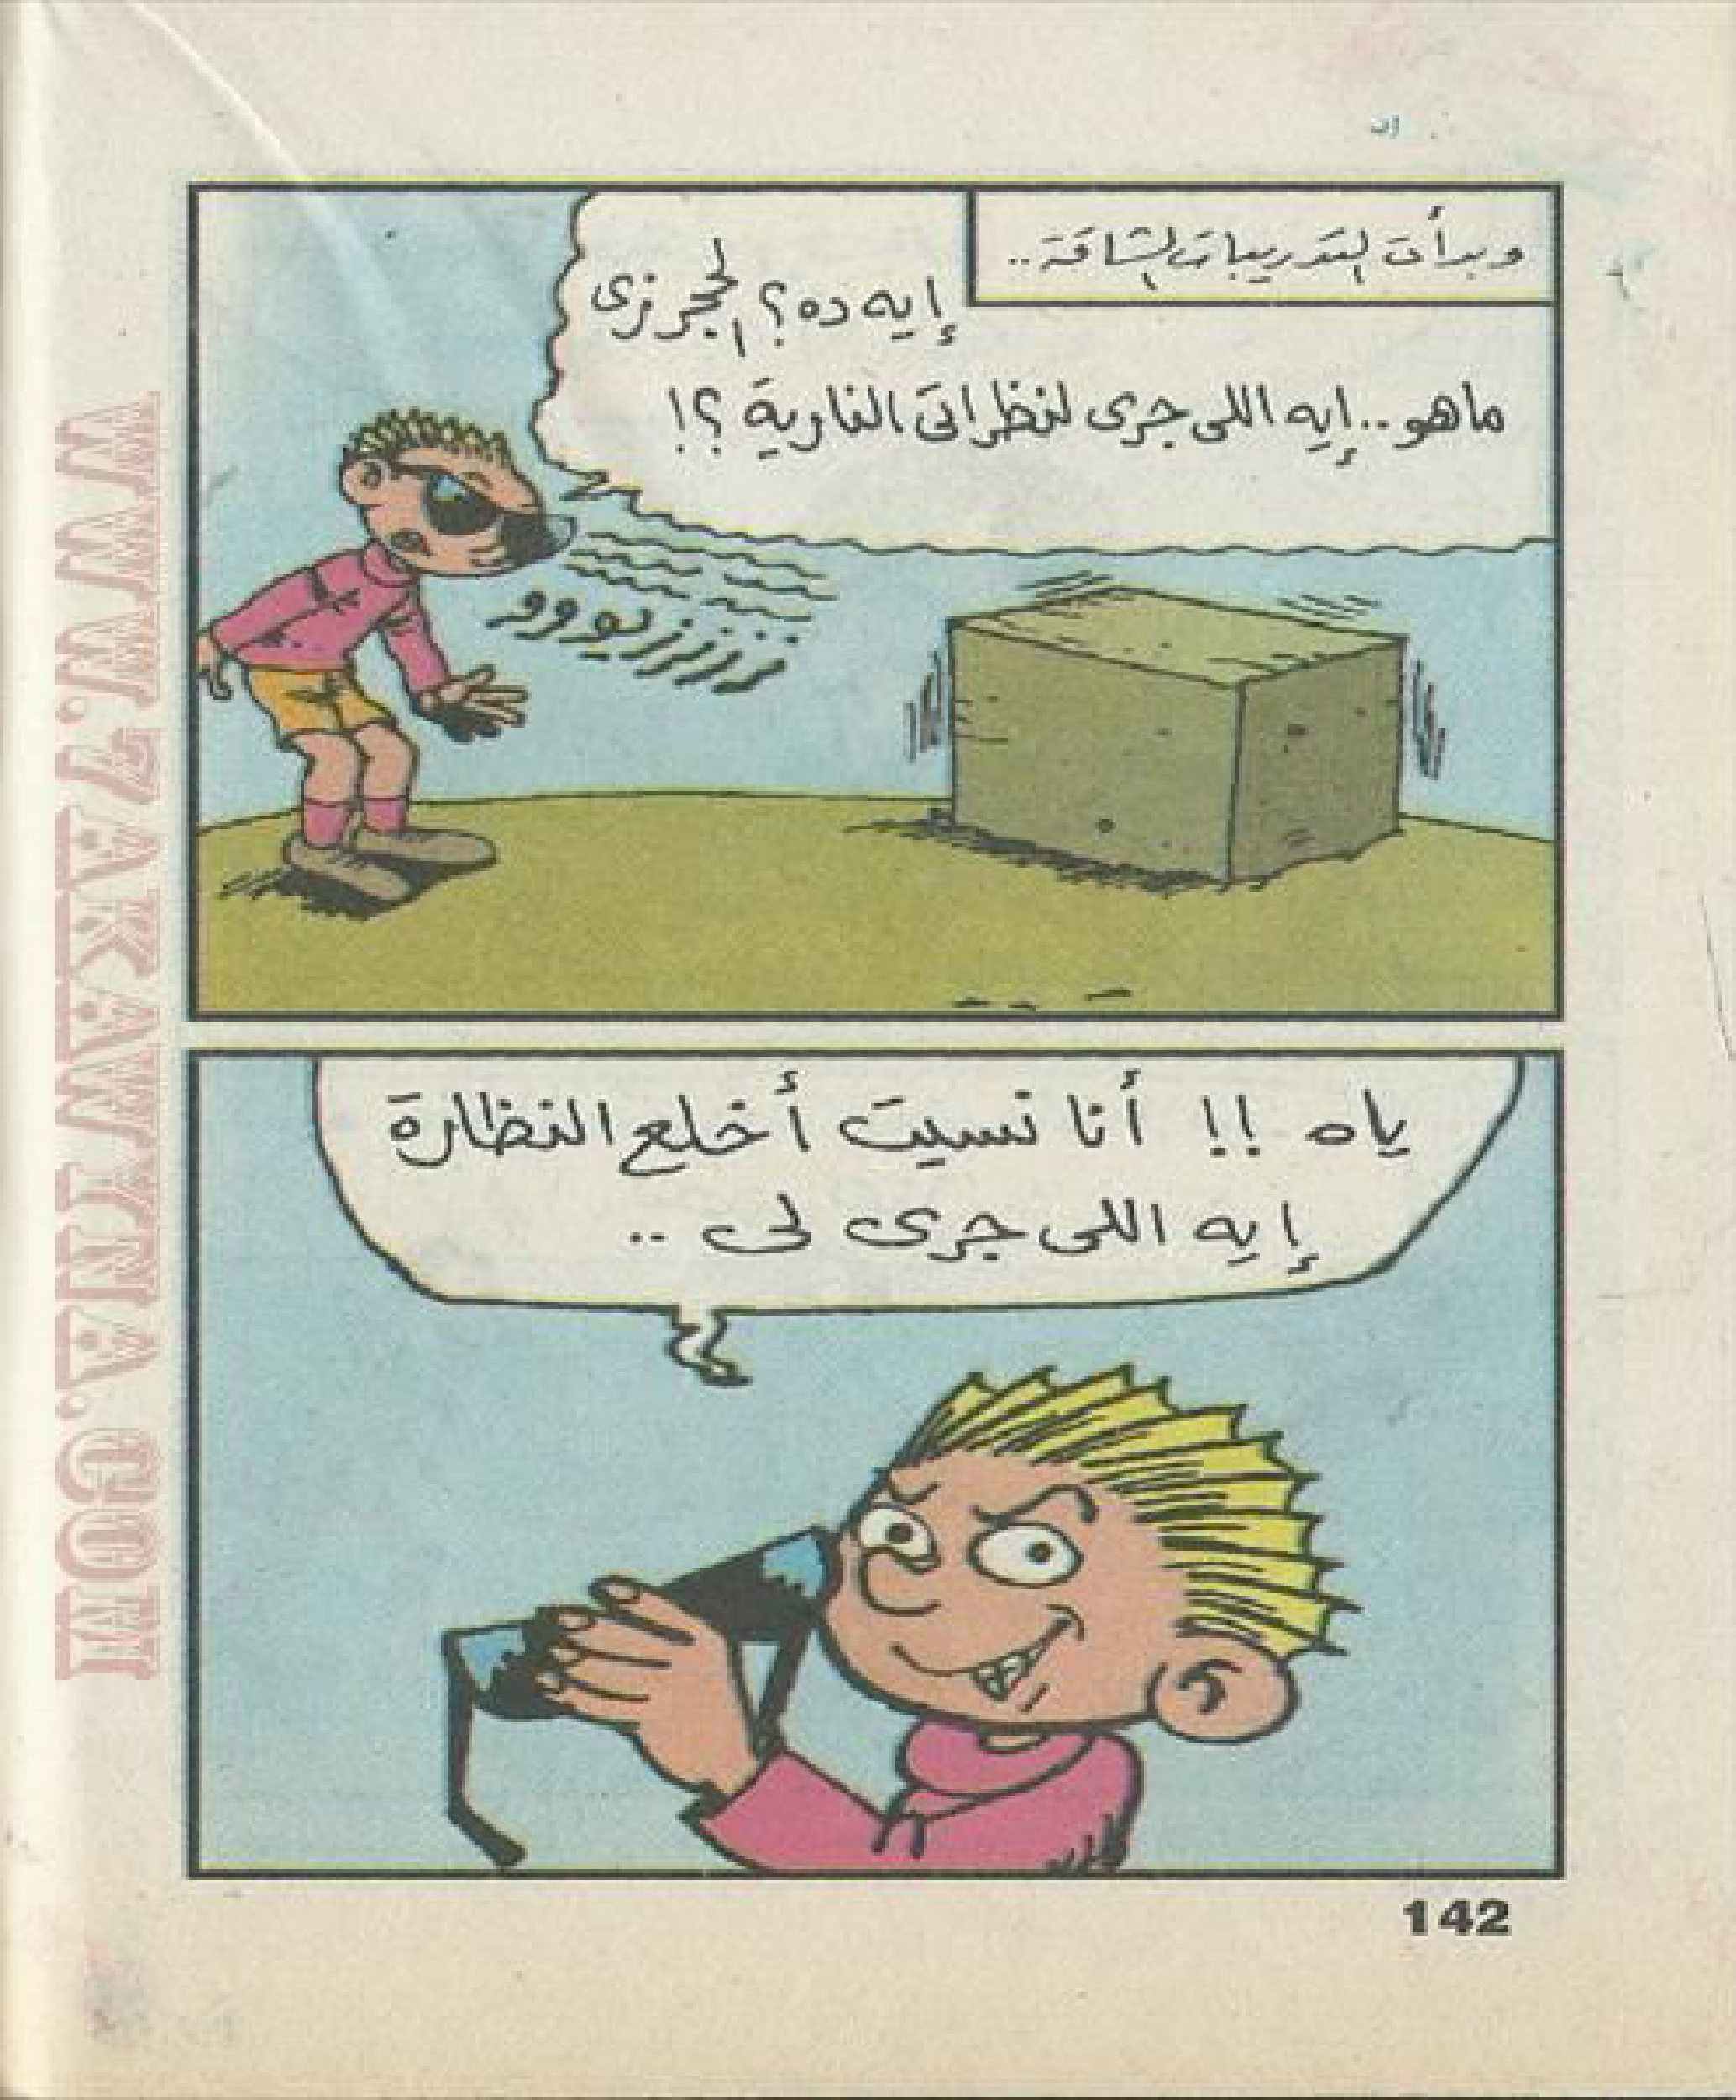 وبدأت التدريبات الشاقة..
إيه ده؟ الحجر زى
ماهو.. إيه اللى جرى لنظراتى النارية ؟!
زززززيووو
ياه !! أنا نسيت أخلع النظارة
إيه اللى جرى لى ..
142
WWW.7AKAWINA.COM